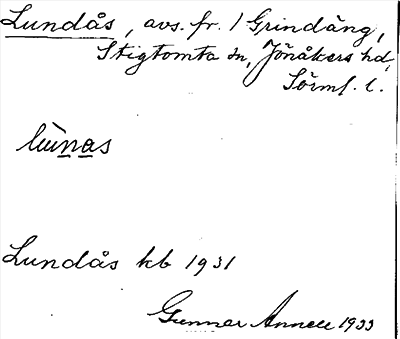 Lundås, avs. fr. 1 Grindäng,
Stigtomta sn, Jönåkers hd,
Sörml. l.
Lundås kb 1931
Gunnar Annell 1933